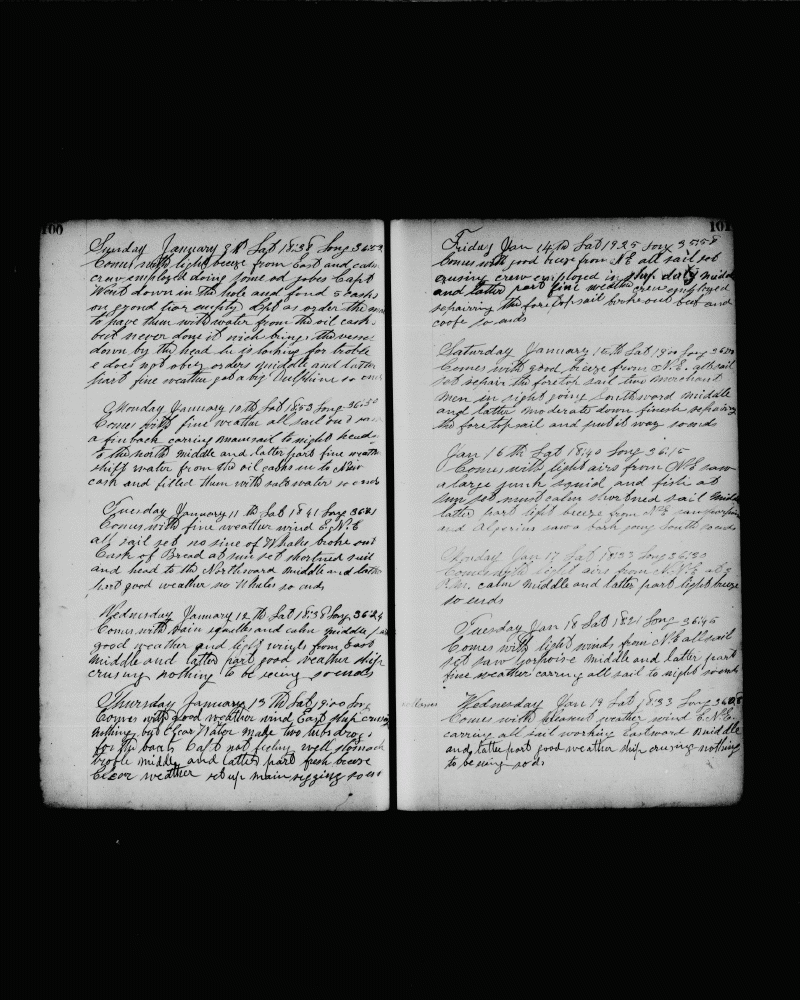 100
Sunday January 9th Lat 18:38 Long 36:52
Comes with light breeze from East and calm
crew employed doing some od jobes Capt
Went down in the hole and found 5 casks
on ground tear empty Kept as order the
to pave them with water from the oil cask
but never done it wich brings the vessel
down by the head he is looking for troble
e does not obey orders middle and latter
part fine weather got a big Dulphine so ends
Monday January 10th Lat 18:53 Long 36:50
Comes with fine weather all sail out
a finback carring mainsail to night heads
to the north middle and latter part fine weather
shift water from the oil casks in to New
cask and filled them with saltwater so ends
Tuesday January 11th Lat 18:41 Long 36:21
Comes with fine weather wind E.N.E
all sail set no sine of Whales broke out
Cask of Bread at sun set shortned sail
and head to the Northward middle and latter
part good weather no Whales so ends
Wednesday January 12th Lat 18:38 Long 36:24
Comes with rain squalls and calm middle
good weather and light winds from East
middle and latter part good weather ship
crusing nothing to be seeing so ends
Thursday January 13th Lat 19:00 Long
Comes with good weather wind East ship crusing
nothing but clear Water make two tubs
for the boats Capt not feeling well stomach
troble middle and latter part fresh breeze
clear weather set up main rigging so ends
101
Friday Jan 14th Lat 19:25 Long 35:58
Comes with good breeze from N.E all sail set
crusing crew employed in ship duty middle
and latter part fine weather crew employed
repairring the foretopsail broke out beef and
so ends
Saturday January 15th Lat 19:00 Long
Comes with good breeze from N.E. all sail
set repair the foretop sail two merchant
men in sight going southward middle
and latter moderate down finesh repairing
the foretopsail and put it way so ends
Jan 16th Lat 18:40 Long 36:15
Comes with light airs from N.E saw
a large junk squid and fish at
sun set most calm shortned sail middle
latter part light breeze from N.E
and saw a bark going South so ends
Monday Jan 17 Lat 18:33 Long 36:30
Comes with light airs from N.N.E at 9
calm middle and latter part light breeze
so ends
Tuesday Jan 18 Lat 18:21 Long 36:45
Comes with light winds from N.E all sail
set saw porpoise middle and latter part
fine weather carring all sail to night so ends
Wednesday Jan 19 Lat 18:33 Long
Comes with pleasant weather wind E.N.E.
carring all sail working Eastward middle
and latter part good weather ship crusing nothing
to be seeing so ends